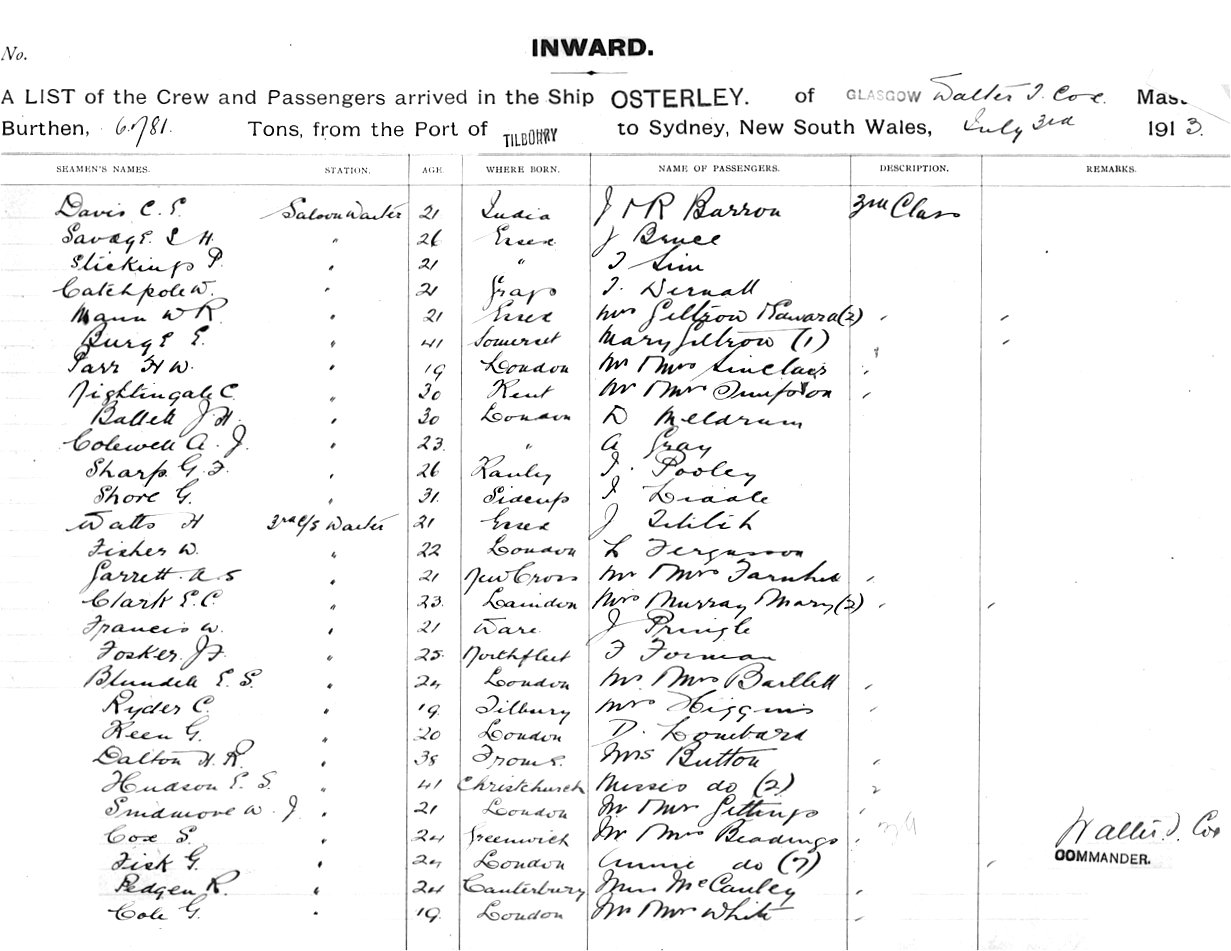 INWARD.
No.
A LIST of the Crew and Passengers arrived in the Ship OSTERLEY. of GLASGOW Walter J. Coxe Mas
Burthen, 6781. Tons, from the Port of TILBURY to Sydney, New South Wales, July 3rd 1913.
SEAMEN'S NAMES. STATION. AGE. WHERE BORN. NAME OF PASSENGERS. DESCRIPTION. REMARKS.
Davis C. S. Saloon Waiter 21 India J & R Barron 3rd Class
Savage S H. " 26 Essex J Bruce
Stickings P. " 21 " J Sim
Catchpole W. " 21 Grays J.
Mann W R. " 21 Essex Mrs Giltrow (2) "
Burge E. " 41 Somerset Mary Giltrow (1)
Parr H W. " 19 London Mr Mrs Sinclair "
Nightingale C. " 30 Kent Mr Mrs Simpson "
J. H. " 30 London D Meldrum
Colewell A. J. " 23 " A Gray
Sharp G. F. " 26 J. Pooley
Shore G. " 31. Sidcup J Liddle
Watts H 3rd C/S Waiter 21 Essex J
Fisher W. " 22 London L Fergusson
Garrett A S " 21 New Cross Mr Mrs "
Clark E. C. " 23. Laindon Mrs Murray Mary (2) "
Francis W. " 21 Ware. J Pringle
Fosker J F. " 25. Northfleet F Forman
Blundell E. S. " 24 London Mr. Mrs Bartlett "
Ryder C. " 19. Tilbury Mrs Higgins
Keen G. " 20 London D. Lombard
Dalton H. R. " 38 Frome. Mrs Button "
Hudson E. S. " 41 Christchurch Misses do (2) "
Smidmore W. J. " 21 London Mr Mrs Gittings "
Cox S. " 24 Greenwich Mr Mrs Beadings Walter J. Cox
Fisk G. " 24 London Annie do (7) COMMANDER.
Pedgen R. " 24 Canterbury Miss McCauley "
Cole G. " 19. London Mr Mrs White "